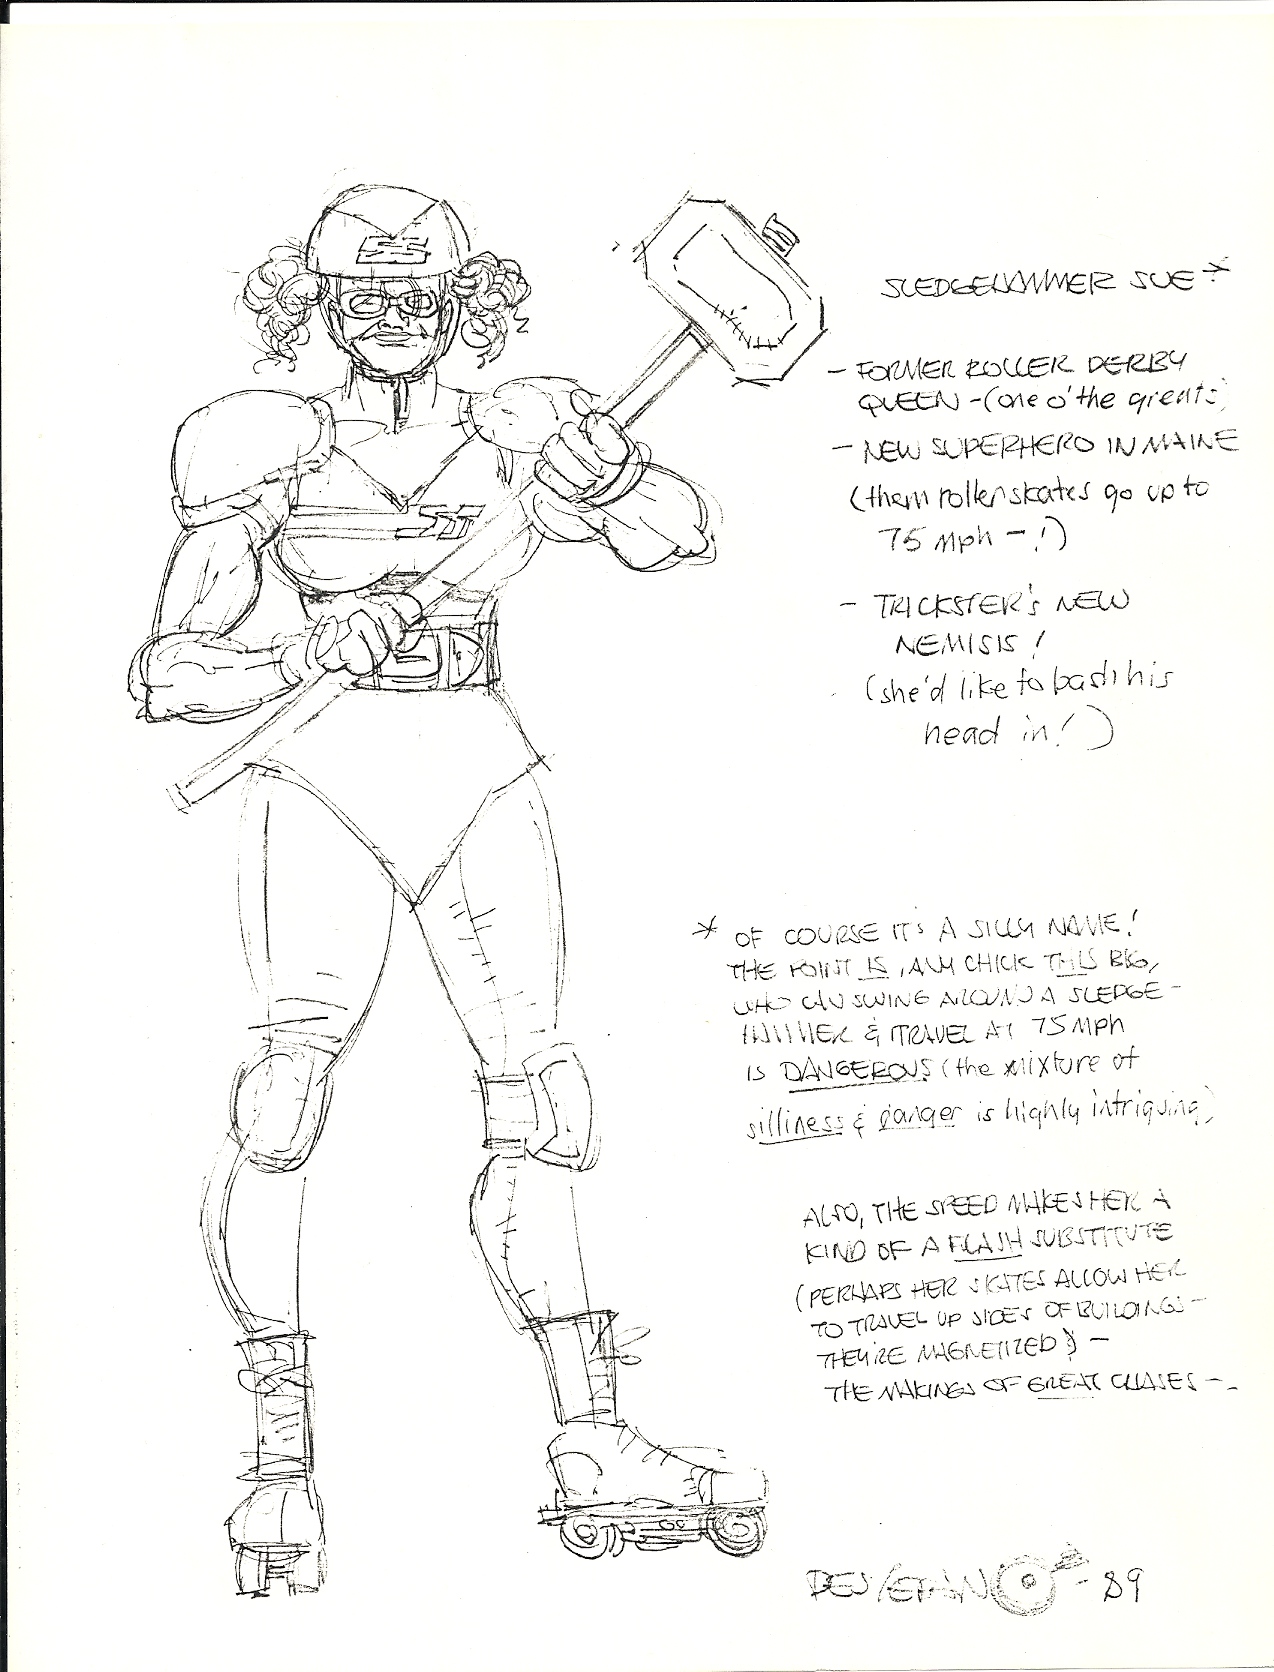 SS
SS
SLEDGEHAMMER SUE*
- FORMER ROLLER DERBY
QUEEN - (one o' the greats)
- NEW SUPERHERO IN MAINE
(them rollerskates go up to
75 mph - !)
- TRICKSTER'S NEW
NEMISIS!
(she'd like to bash his
head in!)
* OF COURSE IT'S A SILLY NAME!
THE POINT IS, ANY CHICK THIS BIG,
WHO CAN SWING AROUND A SLEDGE-
HAMMER & TRAVEL AT 75 MPH
IS DANGEROUS (the mixture of
silliness & danger is highly intriguing)
ALSO, THE SPEED MAKES HER A
KIND OF A FLASH SUBSTITUTE
(PERHAPS HER SKATES ALLOW HER
TO TRAVEL UP SIDES OF BUILDINGS -
THEY'RE MAGNETIZED) -
THE MAKINGS OF GREAT CHASES - -
- 89